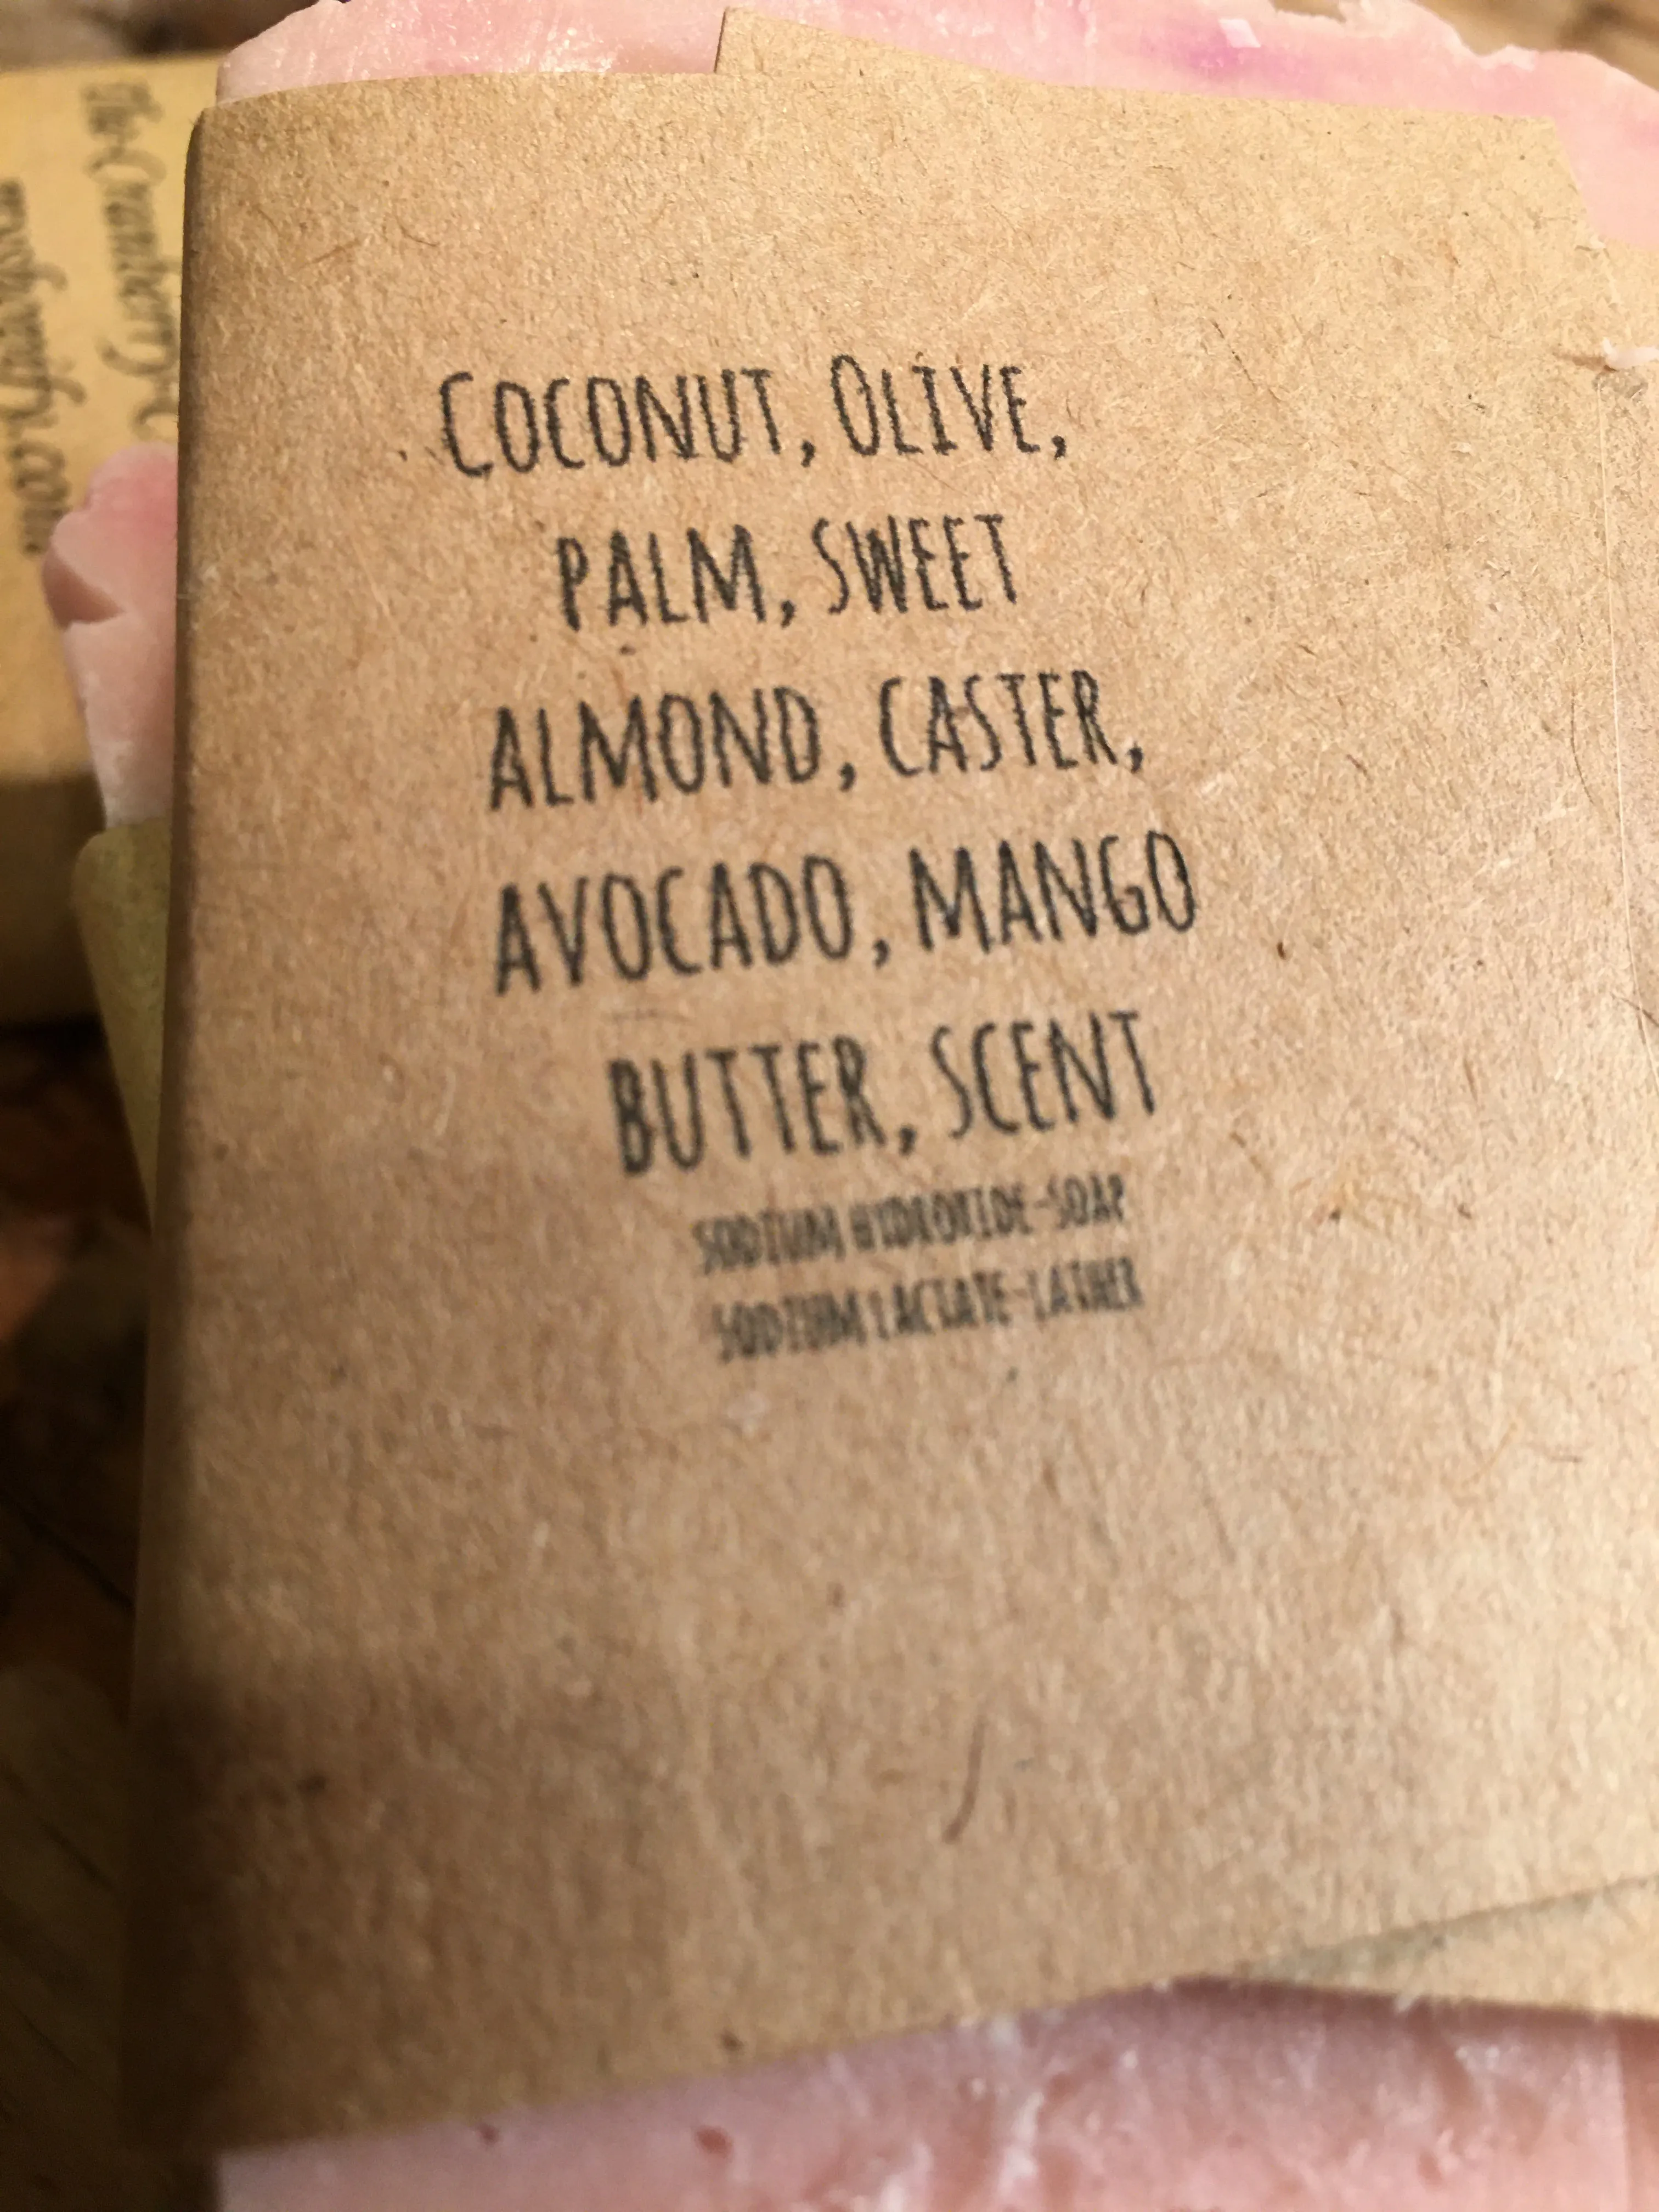 COCONUT, OLIVE,
PALM, SWEET
ALMOND, CASTER,
AVOCADO, MANGO
BUTTER, SCENT
SODIUM HYDROXIDE-SOAP
SODIUM LACTATE-LATHER